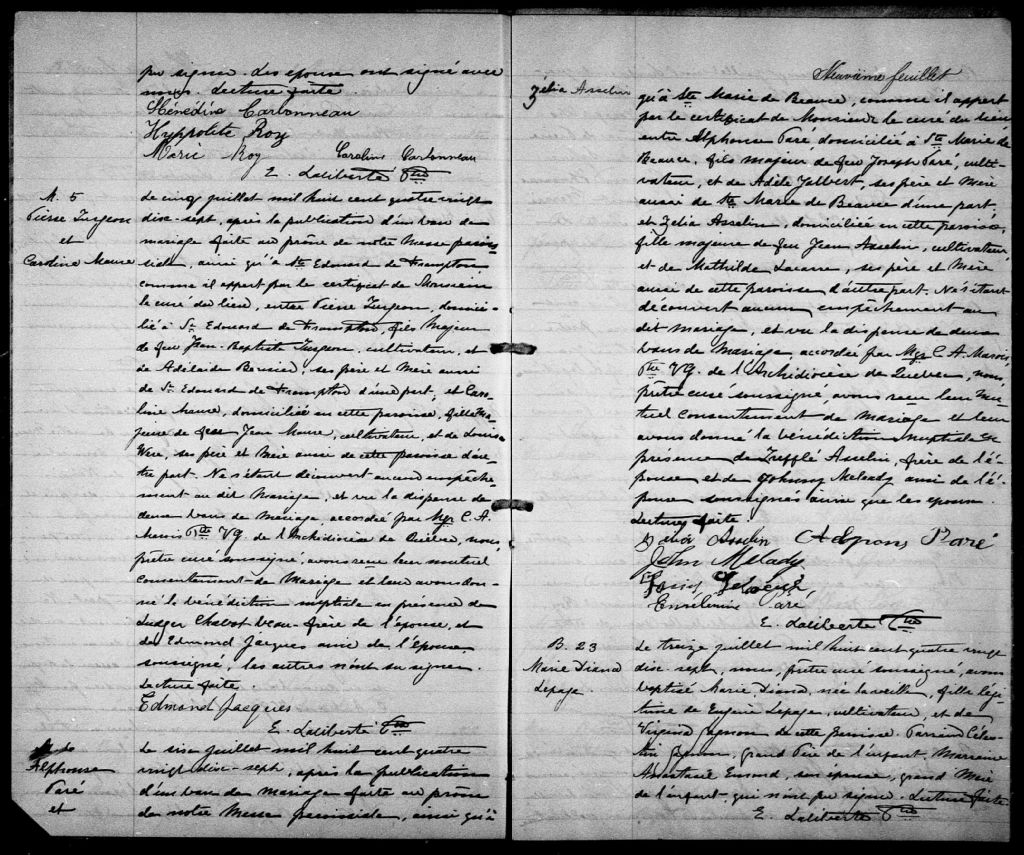 pu signer. Les epoux ont signé avec
nous. Lecture faite.
Hénédine Carbonneau
Hyppolite Roy
Marie Roy Caroline Carbonneau
E. Laliberté Ptre
M. 5
Pierre Turgeon
et
Caroline Maure
Le cinq juillet mil huit cent quatre vingt
dix-sept, après la publication d'un ban de
mariage faite au prône de notre Messe parois-
siale, ainsi qu'à St. Edouard de Frampton
comme il appert par le certificat de Monsieur
le curé du lieu, entre Pierre Turgeon, domici-
lié à St. Edouard de Frampton, fils Majeur
de feu Jean-Baptiste Turgeon, cultivateur, et
de Adélaïde, ses père et Mère aussi
de St. Edouard de Frampton d'une part; et Caro-
line Maure, domiciliée en cette paroisse, fille Ma-
jeure de feu Jean Maure, cultivateur, et de Louise
ses père et Mère aussi de cette paroisse d'au-
tre part. Ne s'étant découvert aucun empêche-
ment au dit Mariage, et vu la dispense de
deux bans de Mariage, accordée par Mgr C. A.
Marois Ptre VG. de l'Archidiocèse de Québec, nous,
prêtre curé soussigné, avons recu leur mutuel
Consentement de Mariage et leur avons don-
né la bénédiction nuptiale en présence de
Ludger Chabot beau-frère de l'épouse, et
de Edmond Jacques ami de l'épouse
soussigné, les autres n'ont su signer.
Lecture faite.
Edmond Jacques
E. Laliberté Ptre
Alphonse
Paré
et
Le six juillet mil huit cent quatre
vingt dix-sept, après la publication
d'un ban de mariage faite au prône
de notre Messe paroissiale, ainsi qu'à
Neuvième feuillet
Zélia Asselin
qu'à Ste Marie de Beauce, comme il appert
par le certificat de Monsieur le curé du lieu
entre Alphonse Paré, domicilié à Ste Marie de
Beauce, fils majeur de feu Joseph Paré, culti-
vateur, et de Adèle Jalbert, ses père et Mère
aussi de Ste Marie de Beauce d'une part,
et Zélia Asselin, domiciliée en cette paroisse,
fille majeure de feu Jean Asselin, cultivateur
et de Mathilde Lacasse, ses père et Mère
aussi de cette paroisse d'autre part. Ne s'étant
découvert aucun empêchement au
dit mariage, et vu la dispense de deux
bans de Mariage, accordée par Mgr C. A. Marois,
Ptre VG. de l'Archidiocèse de Québec, nous,
prêtre curé soussigné, avons recu leur Mu-
tuel Consentement de Mariage et leur
avons donné la bénédiction nuptiale en
présence de Trefflé Asselin, frère de l'é-
pouse et de Johnny Melady ami de l'é-
poux soussignés ainsi que les epoux.
Lecture faite.
Asselin Alphons Paré
John Melady
Paré
E. Laliberté Ptre
B. 23
Marie Diana
Lepage
Le treize juillet mil huit cent quatre vingt
dix-sept, nous, prêtre curé soussigné, avons
baptisé Marie, Diana, née la veille, fille légi-
time de Eugène Lepage, cultivateur, et de
de cette paroisse. Parrain Céles-
tin grand Père de l'enfant, Marraine
Anastasie son épouse, grand Mère
de l'enfant, qui n'ont pu signer. Lecture faite
E. Laliberté Ptre